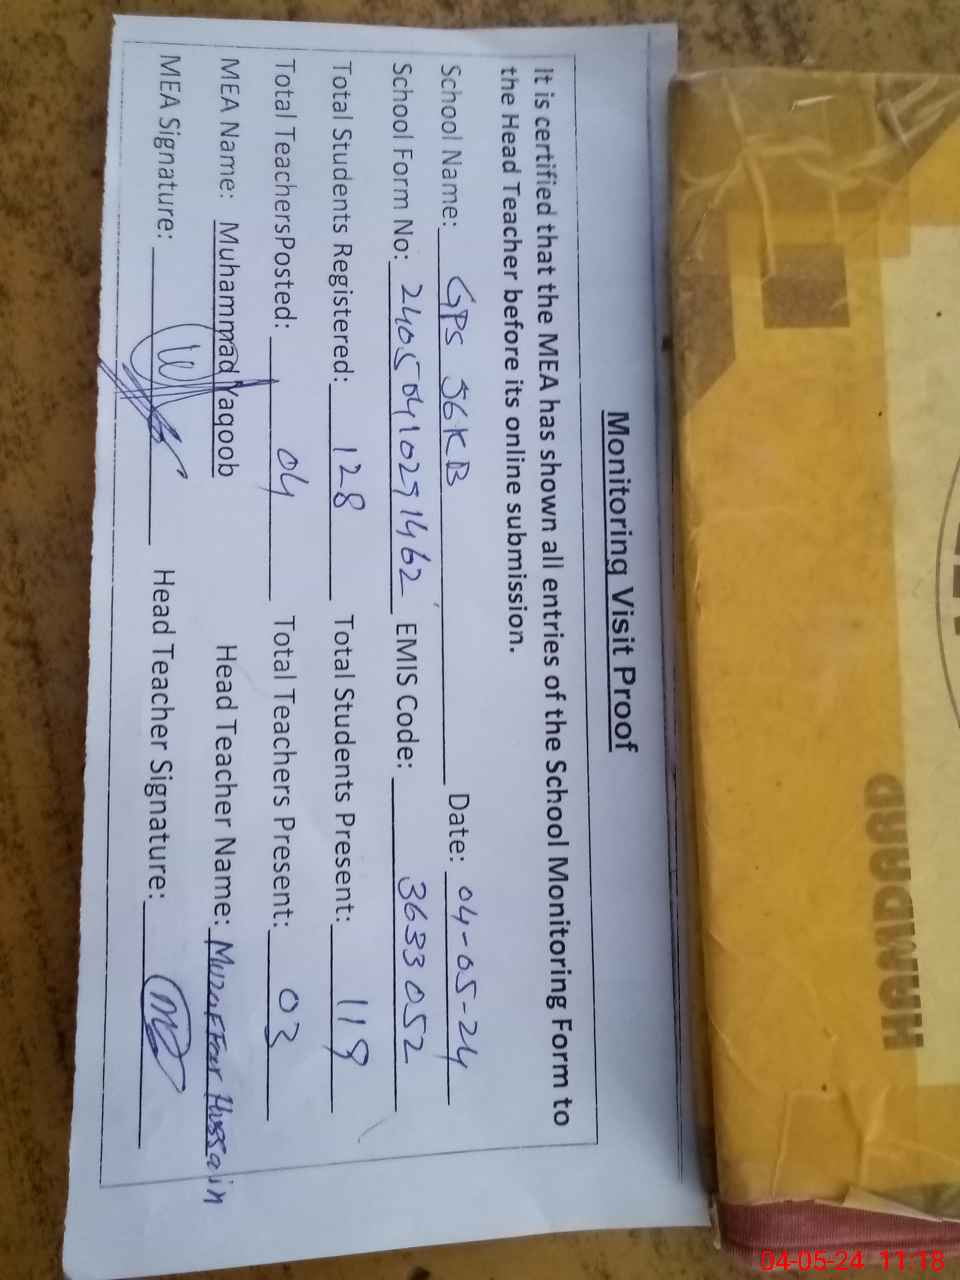 Monitoring Visit Proof
It is certified that the MEA has shown all entries of the School Monitoring Form to
the Head Teacher before its online submission.
School Name: GPS 56KB Date: 04-05-24
School Form No: 24050410291462 EMIS Code: 3633052
Total Students Registered: 128 Total Students Present: 119
Total TeachersPosted: 04 Total Teachers Present: 03
MEA Name: Muhammad Yaqoob Head Teacher Name: Muzaffar Hussain
MEA Signature: Head Teacher Signature:
HNWDARD
04-05-24 11:18